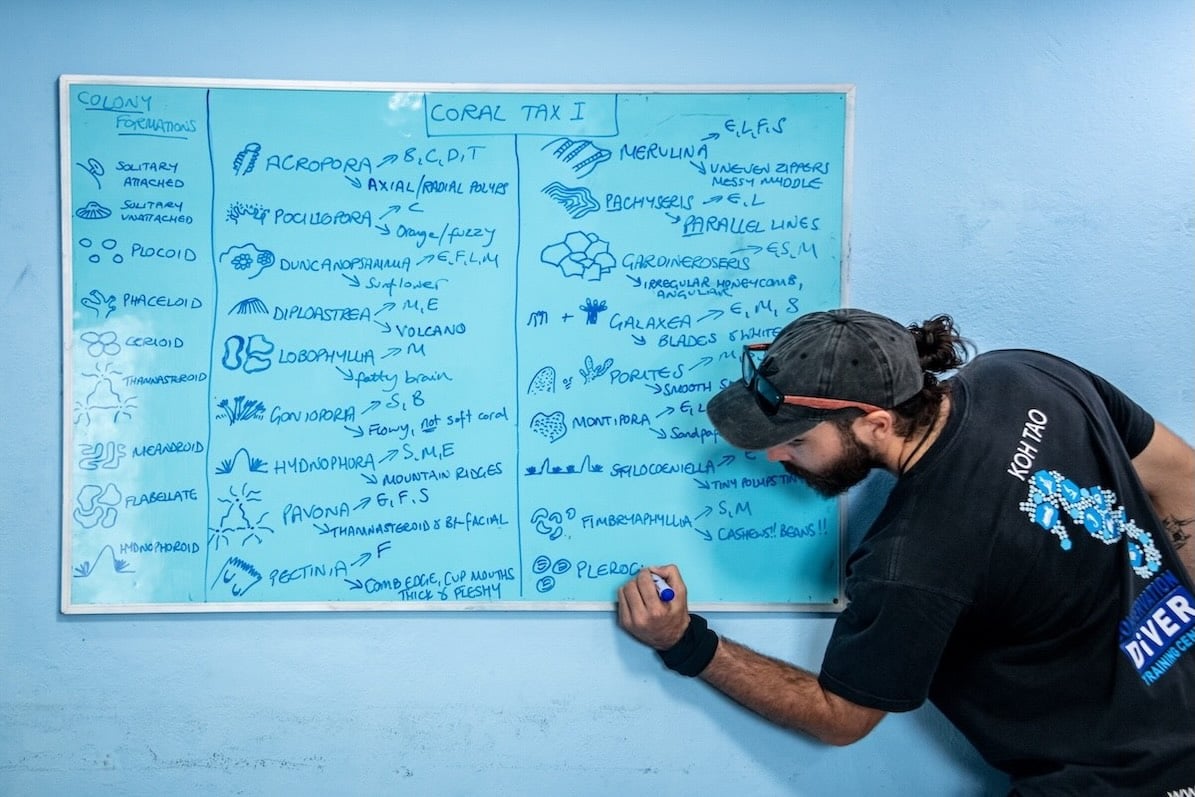 COLONY
FORMATIONS
SOLITARY
ATTACHED
SOLITARY
UNATTACHED
PLOCOID
PHACELOID
CERIOID
THAMNASTEROID
MEANDROID
FLABELLATE
HYDNOPHOROID
CORAL TAX I
ACROPORA → B, C, D, T
AXIAL/RADIAL POLYPS
POCILLOPORA → C
Orange/fuzzy
DUNCANOPSAMMIA → E, F, L, M
Sunflower
DIPLOASTREA → M, E
VOLCANO
LOBOPHYLLIA → M
fatty brain
GONIOPORA → S, B
Flowy, not soft coral
HYDNOPHORA → S, M, E
MOUNTAIN RIDGES
PAVONA → E, F, S
THAMNASTEROID & BI-FACIAL
PECTINIA → F
COMB EDGE, CUP MOUTHS
THICK & FLESHY
MERULINA → E, L, F, S
UNEVEN ZIPPERS
MESSY MIDDLE
PACHYSERIS → E, L
PARALLEL LINES
GARDINEROSERIS → E, S, M
IRREGULAR HONEYCOMB,
ANGULAR
+ GALAXEA → E, M, S
BLADES & WHITE
PORITES → M,
SMOOTH
MONTIPORA → E, L
Sandpap
STYLOCOENIELLA → E
TINY POLYPS
FIMBRYAPHYLLIA → S, M
CASHEWS!! BEANS!!
PLEROG
KOH TAO
DiVER
TRAINING CEN